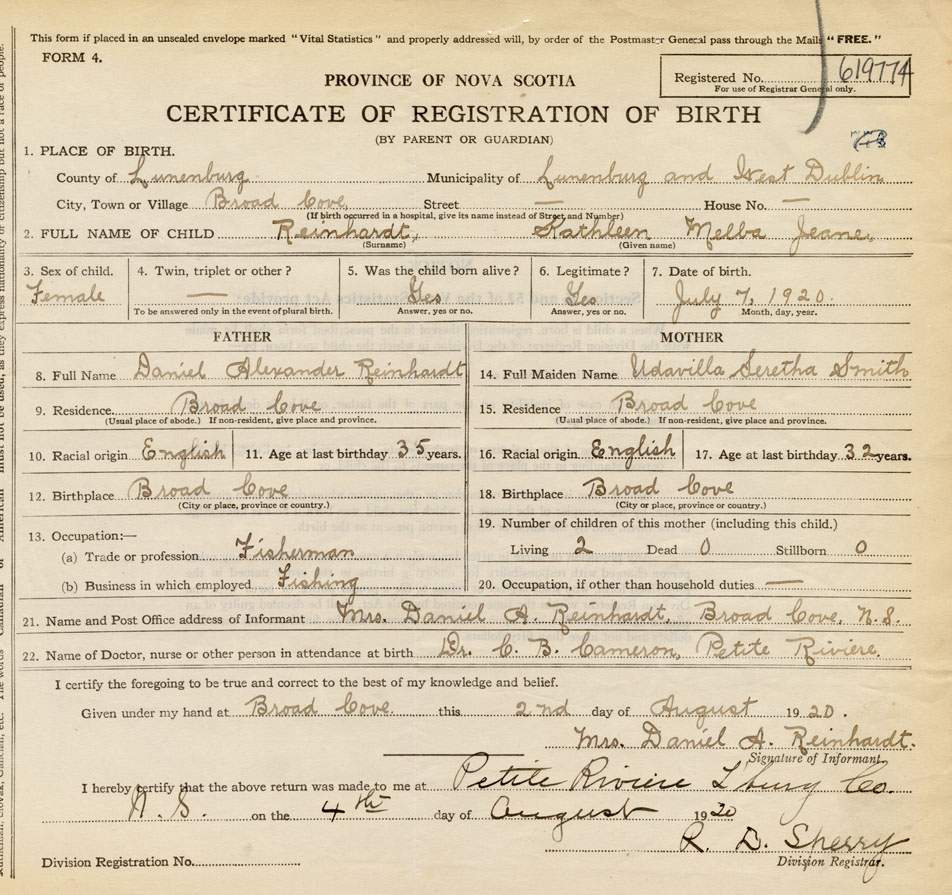 This form if placed in an unsealed envelope marked "Vital Statistics" and properly addressed will, by order of the Postmaster General pass through the Mails "FREE."
FORM 4.
PROVINCE OF NOVA SCOTIA
Registered No. 619774
For use of Registrar General only.
CERTIFICATE OF REGISTRATION OF BIRTH
(BY PARENT OR GUARDIAN)
1. PLACE OF BIRTH.
County of Lunenburg Municipality of Lunenburg and West Dublin
City, Town or Village Broad Cove Street — House No. —
(If birth occurred in a hospital, give its name instead of Street and Number)
2. FULL NAME OF CHILD Reinhardt, Kathleen Melba Jeane.
(Surname) (Given name)
3. Sex of child. 4. Twin, triplet or other? 5. Was the child born alive? 6. Legitimate? 7. Date of birth.
Female — Yes Yes July 7, 1920.
To be answered only in the event of plural birth. Answer, yes or no. Answer, yes or no. Month, day, year.
FATHER MOTHER
8. Full Name Daniel Alexander Reinhardt 14. Full Maiden Name Udavilla Seretha Smith
9. Residence Broad Cove 15. Residence Broad Cove
(Usual place of abode.) If non-resident, give place and province. (Usual place of abode.) If non-resident, give place and province.
10. Racial origin English 11. Age at last birthday 35 years. 16. Racial origin English 17. Age at last birthday 32 years.
12. Birthplace Broad Cove 18. Birthplace Broad Cove
(City or place, province or country.) (City or place, province or country.)
13. Occupation:— 19. Number of children of this mother (including this child.)
(a) Trade or profession Fisherman Living 2 Dead 0 Stillborn 0
(b) Business in which employed Fishing 20. Occupation, if other than household duties —
21. Name and Post Office address of Informant Mrs. Daniel A. Reinhardt, Broad Cove, N.S.
22. Name of Doctor, nurse or other person in attendance at birth Dr. C. B. Cameron, Petite Riviere.
I certify the foregoing to be true and correct to the best of my knowledge and belief.
Given under my hand at Broad Cove. this 2nd day of August 1920.
Mrs. Daniel A. Reinhardt.
Signature of Informant.
I hereby certify that the above return was made to me at Petite Riviere L'burg Co.
N.S. on the 4th day of August 1920
R. D. Sherry
Division Registration No. Division Registrar.